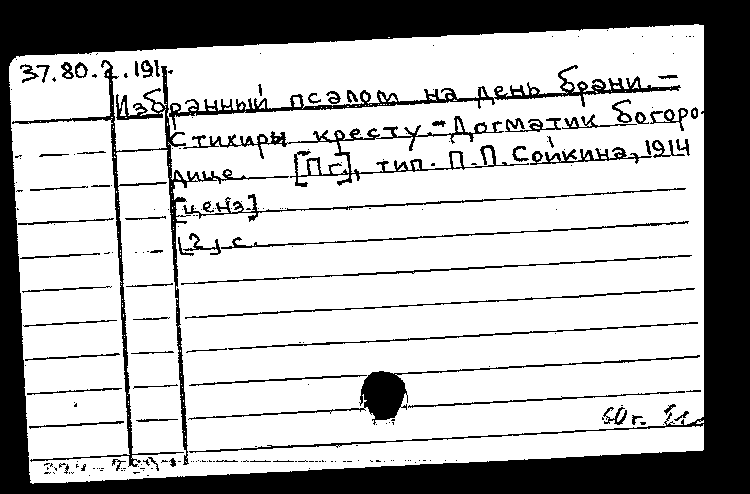 37.80.2.191.
Избранный псалом на день брани. –
Стихиры кресту. – Догматик богоро-
дице. [Пг.], тип. П.П. Сойкина, 1914
[ценз.]
[2] с.
60 г.